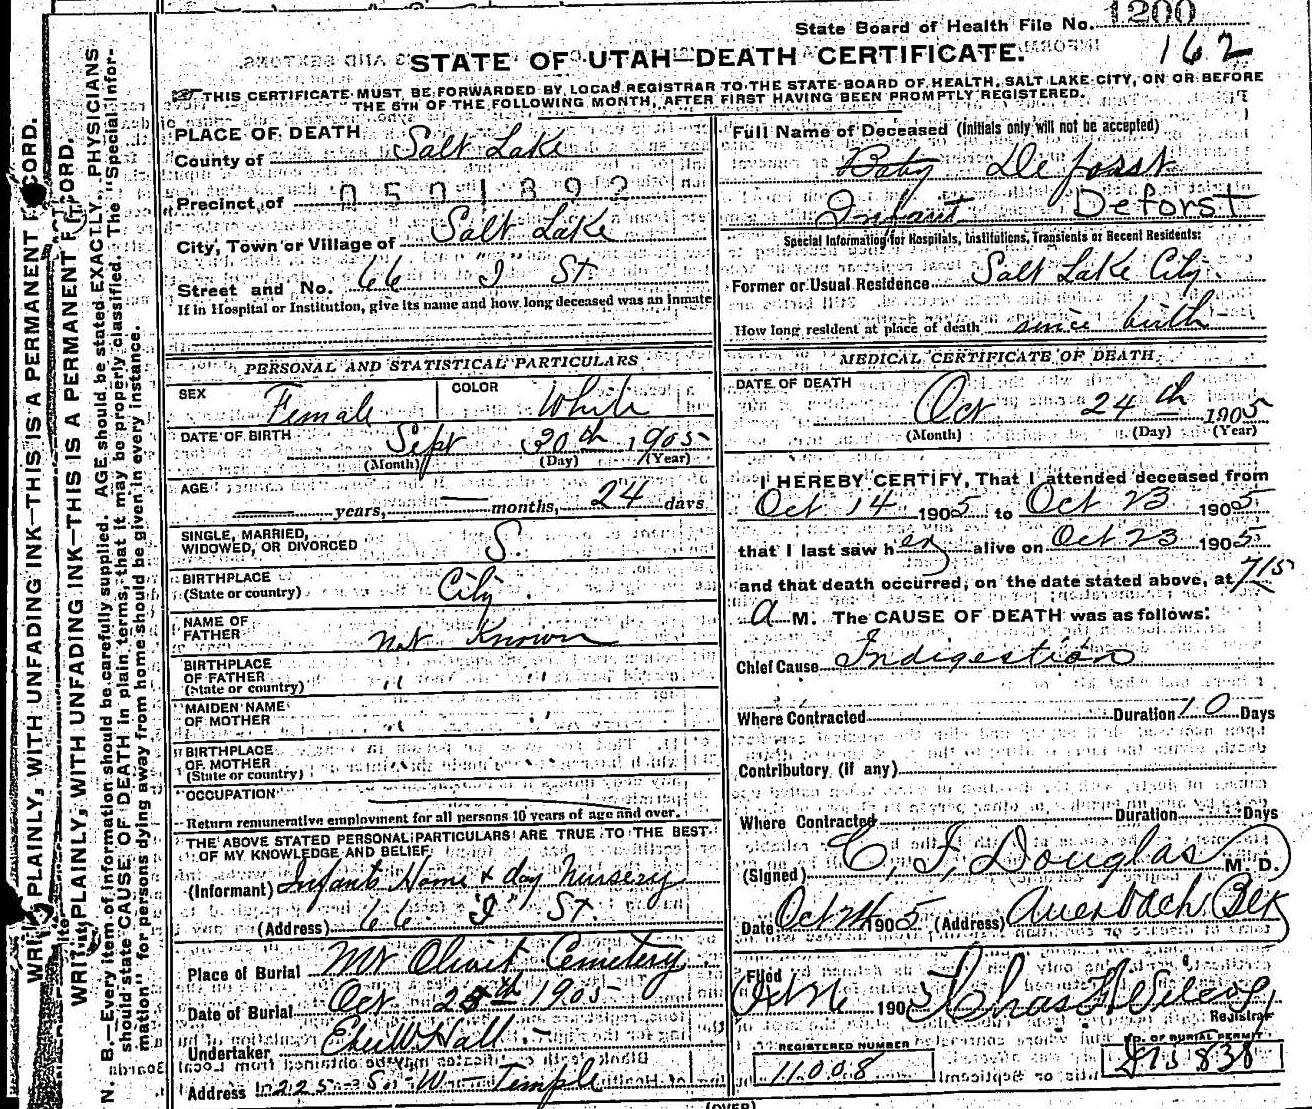 State Board of Health File No. 1200
162
STATE OF UTAH—DEATH CERTIFICATE.
THIS CERTIFICATE MUST BE FORWARDED BY LOCAL REGISTRAR TO THE STATE BOARD OF HEALTH, SALT LAKE CITY, ON OR BEFORE
THE 5TH OF THE FOLLOWING MONTH, AFTER FIRST HAVING BEEN PROMPTLY REGISTERED.
WRITE PLAINLY, WITH UNFADING INK—THIS IS A PERMANENT RECORD.
WRITE PLAINLY, WITH UNFADING INK—THIS IS A PERMANENT RECORD.
N. B.—Every item of information should be carefully supplied. AGE should be stated EXACTLY. PHYSICIANS
should state CAUSE OF DEATH in plain terms, that it may be properly classified. The "Special Infor-
mation" for persons dying away from home should be given in every instance.
PLACE OF DEATH
County of Salt Lake
Precinct of 0501392
City, Town or Village of Salt Lake
Street and No. 66 "I" St.
If in Hospital or Institution, give its name and how long deceased was an inmate
PERSONAL AND STATISTICAL PARTICULARS
SEX Female COLOR White
DATE OF BIRTH Sept 30th 1905
(Month) (Day) (Year)
AGE years, months, 24 days
SINGLE, MARRIED,
WIDOWED, OR DIVORCED S.
BIRTHPLACE
(State or country) City.
NAME OF
FATHER not Known
BIRTHPLACE
OF FATHER
(State or country) "
MAIDEN NAME
OF MOTHER " "
BIRTHPLACE
OF MOTHER
(State or country)
OCCUPATION
Return remunerative employment for all persons 10 years of age and over.
THE ABOVE STATED PERSONAL PARTICULARS ARE TRUE TO THE BEST
OF MY KNOWLEDGE AND BELIEF
(Informant) Infants Home & day Nursery
(Address) 66 "I" St.
Place of Burial Mt Olivet Cemetery.
Date of Burial Oct 25th 1905
Undertaker Eber W Hall
Address 225 S. W- Temple
Full Name of Deceased (Initials only will not be accepted)
Baby Deforst
Infant Deforst
Special Information for Hospitals, Institutions, Transients or Recent Residents:
Former or Usual Residence Salt Lake City.
How long resident at place of death since birth
MEDICAL CERTIFICATE OF DEATH
DATE OF DEATH
Oct 24th 1905
(Month) (Day) (Year)
I HEREBY CERTIFY, That I attended deceased from
Oct 14 1905 to Oct 23 1905
that I last saw her alive on Oct 23 1905
and that death occurred, on the date stated above, at 715
a M. The CAUSE OF DEATH was as follows:
Chief Cause Indigestion
Where Contracted Duration 10 Days
Contributory (if any)
Where Contracted Duration Days
(Signed) C. F. Douglas M. D.
Date Oct 24 1905 (Address) Auerbach Blk
Filed
Oct 26 1905 Chas F Wilcox,
Registrar
REGISTERED NUMBER
11008
NO. OF BURIAL PERMIT
838
(OVER)